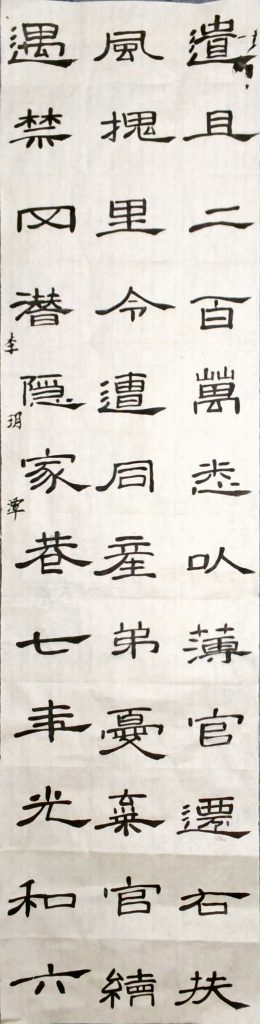 遺且二百萬悉以薄官遷右扶
風槐里令遭同産弟憂棄官續
遇禁网潜隐家巷七年光和六
李玥